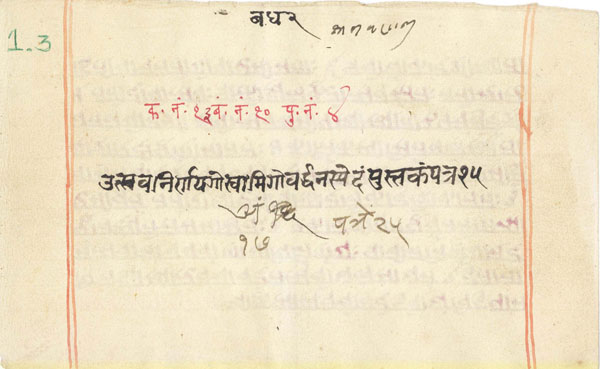 1.3
बधर
क. नं. १३ब. नं. १० पु. नं. ४
उत्सवनिर्णयगोस्वामिगोवर्द्धनस्येदंपुस्तकंपत्र२५
अं
पत्रे २५
१७